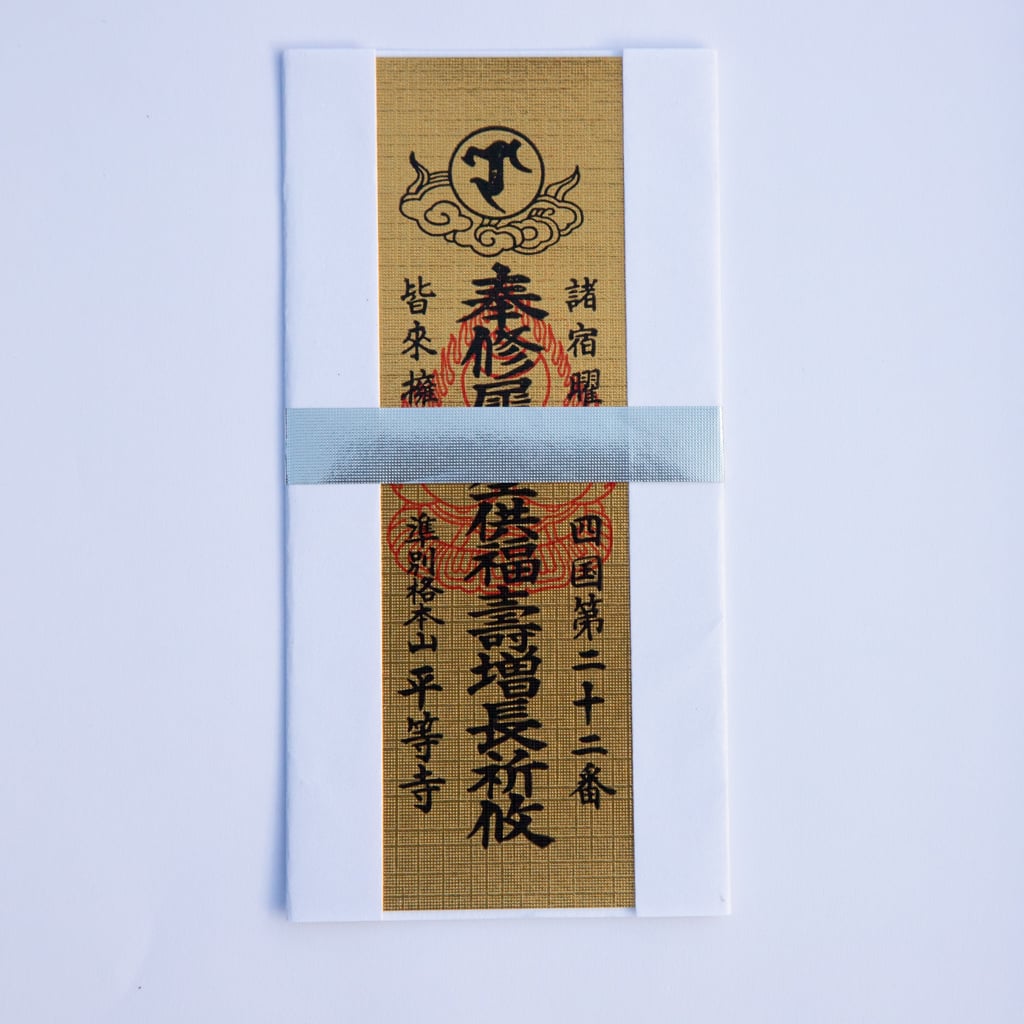 諸宿曜
四国第二十二番
奉修
供福壽増長祈攸
皆來擁
準別格本山 平等寺